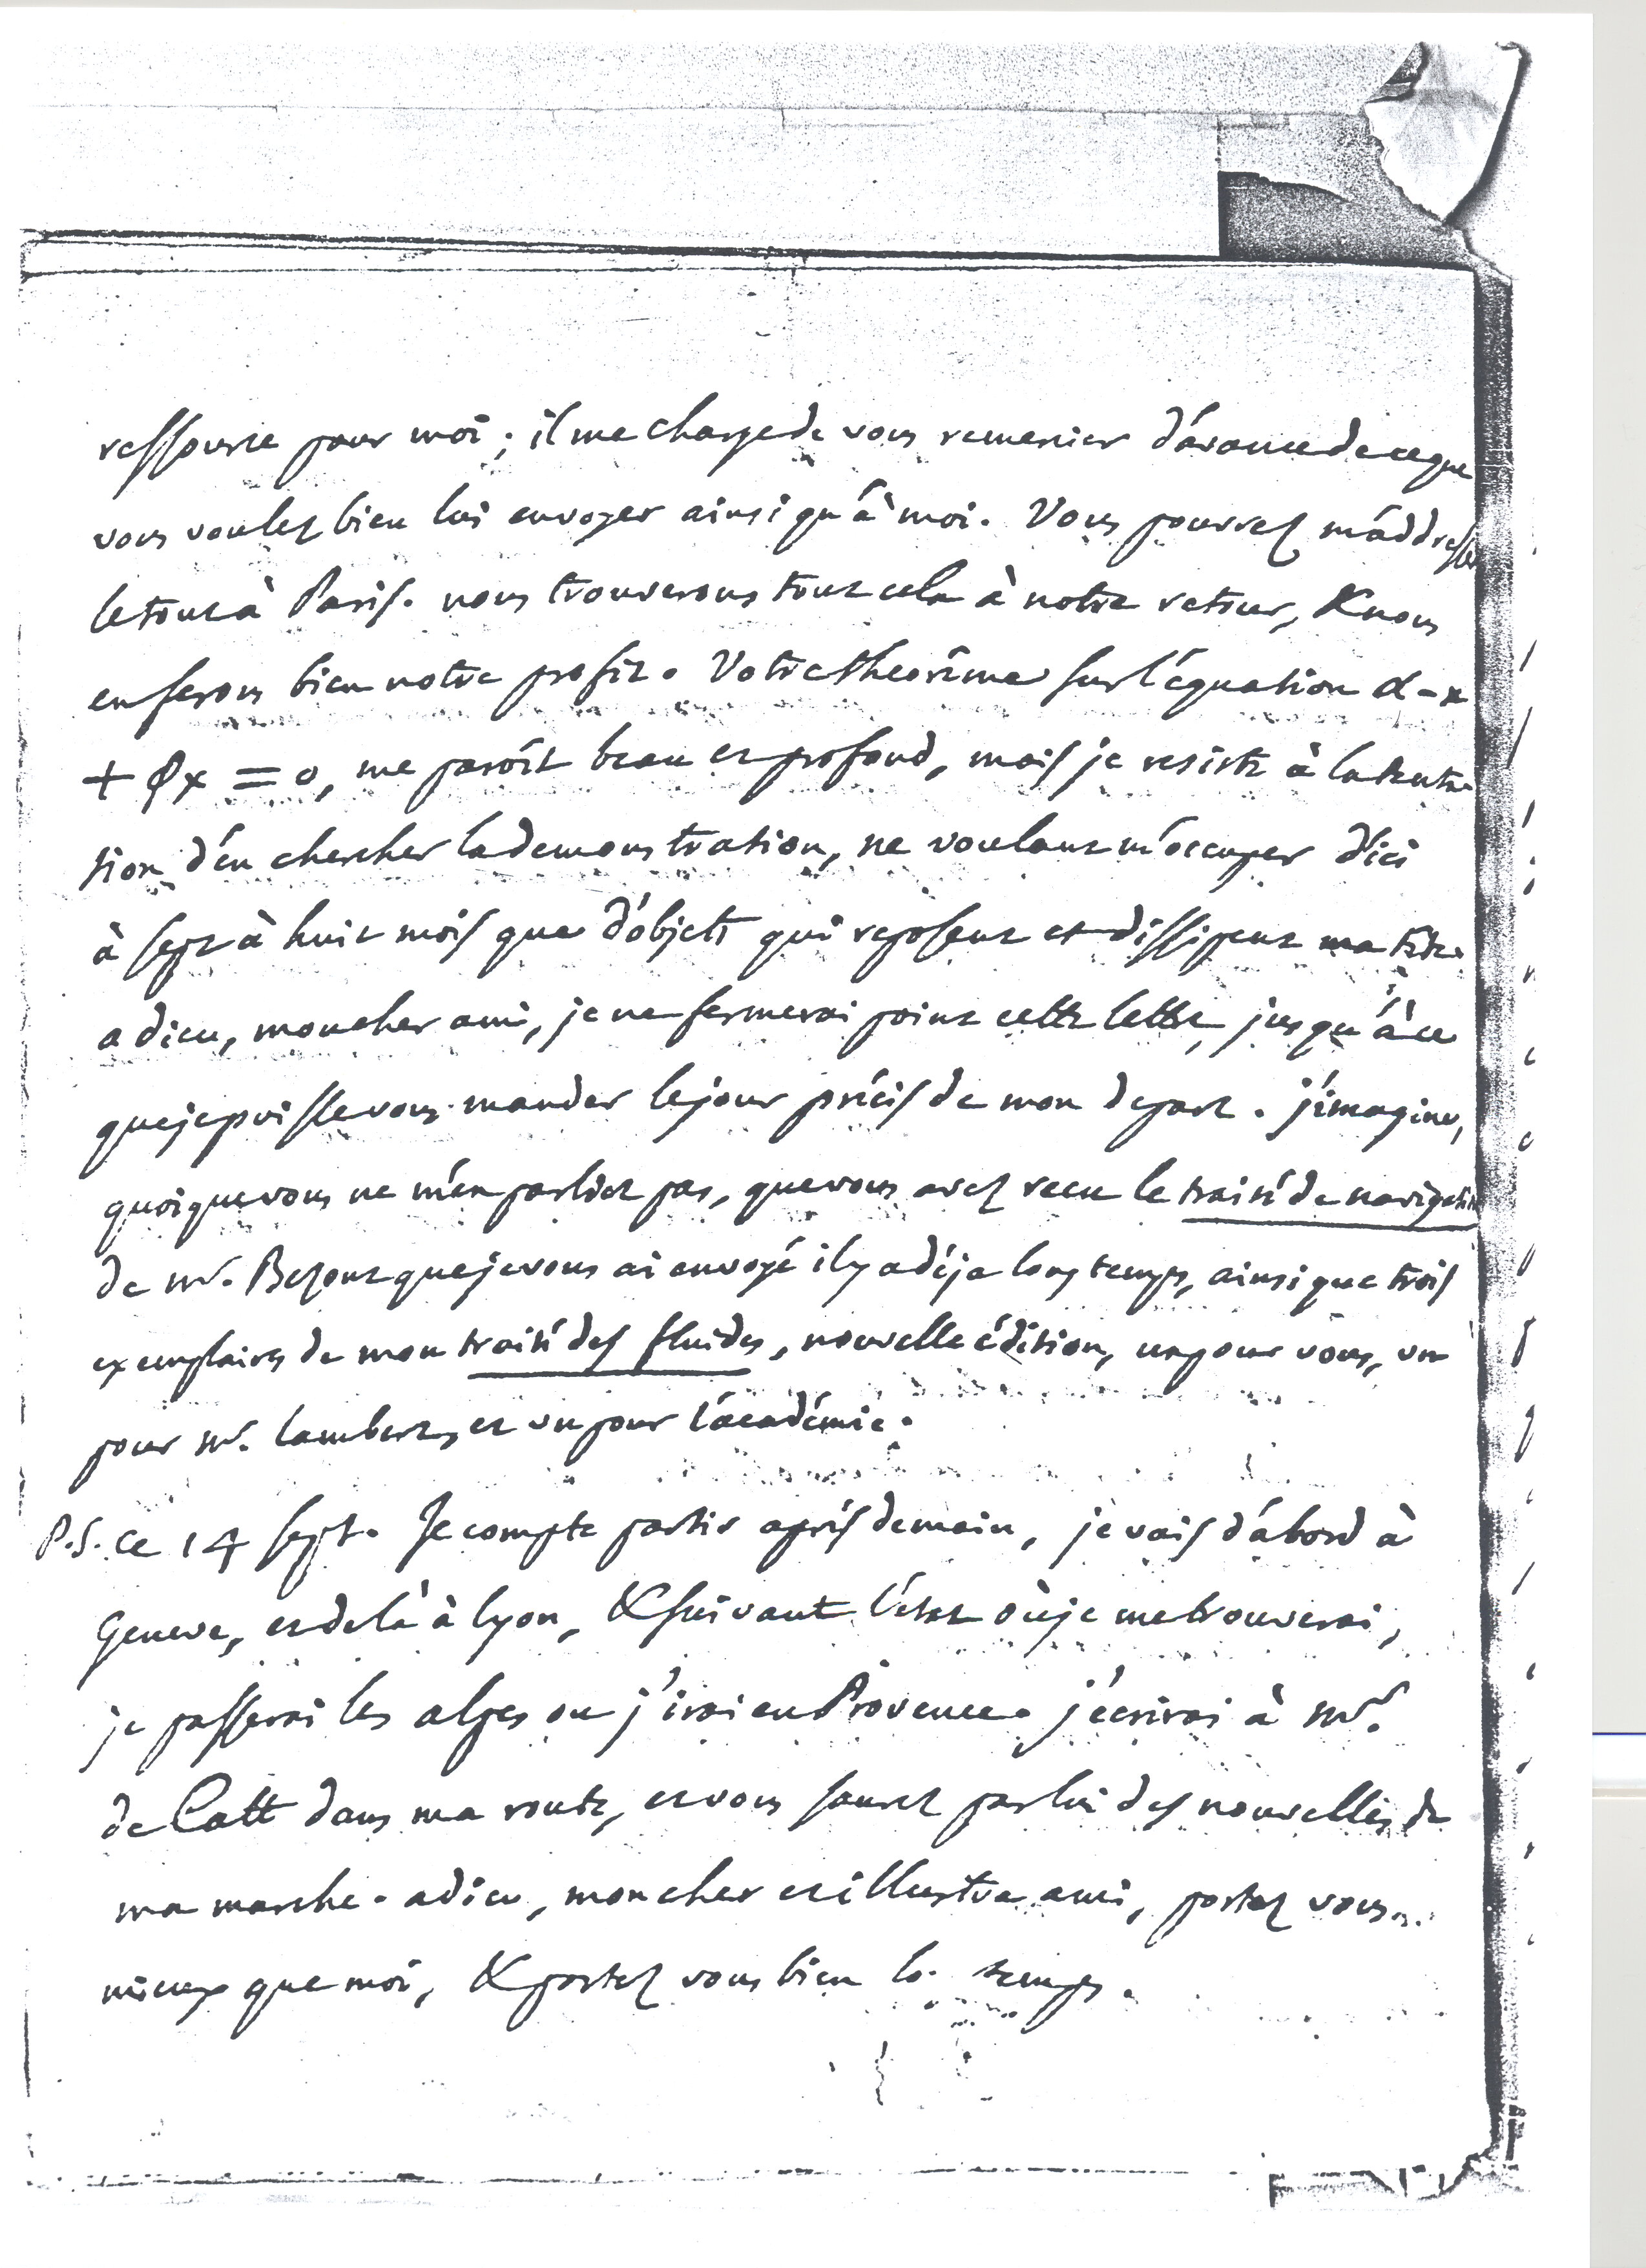 ressource pour moi; il me charge de vous remercier d'avance de ce que
vous voulez bien lui envoyer ainsi qu'à moi. Vous pourrez m'addresser
le tout à Paris. nous trouverons tout cela à notre retour, & nous
en ferons bien notre profit. Votre theorême sur l'équation α - x
+ φx = 0, me paroît beau et profond, mais je resiste à la tenta-
tion d'en chercher la demonstration, ne voulant m'occuper d'ici
à sept à huit mois que d'objets qui reposent et dissipent ma tête.
adieu, mon cher ami, je ne fermerai point cette lettre, jusqu'à ce
que je puisse vous mander le jour précis de mon depart. j'imagine,
quoique vous ne m'en parliez pas, que vous avez recu le traité de navigation
de mr. Bezout que je vous ai envoyé il y a déja longtemps, ainsi que trois
exemplaires de mon traité des fluides, nouvelle édition, un pour vous, un
pour mr. lambert, et un pour l'académie.
P.S. ce 14 sept. Je compte partir après demain, je vais d'abord à
Geneve, et de là à lyon, & suivant l'etat où je me trouverai,
je passerai les alpes ou j'irai en Provence. j'écrirai à mr.
de Catt dans ma route, et vous saurez par lui des nouvelles de
ma marche. adieu, mon cher et illustre ami, portez vous
mieux que moi, & portez vous bien lo. temps.